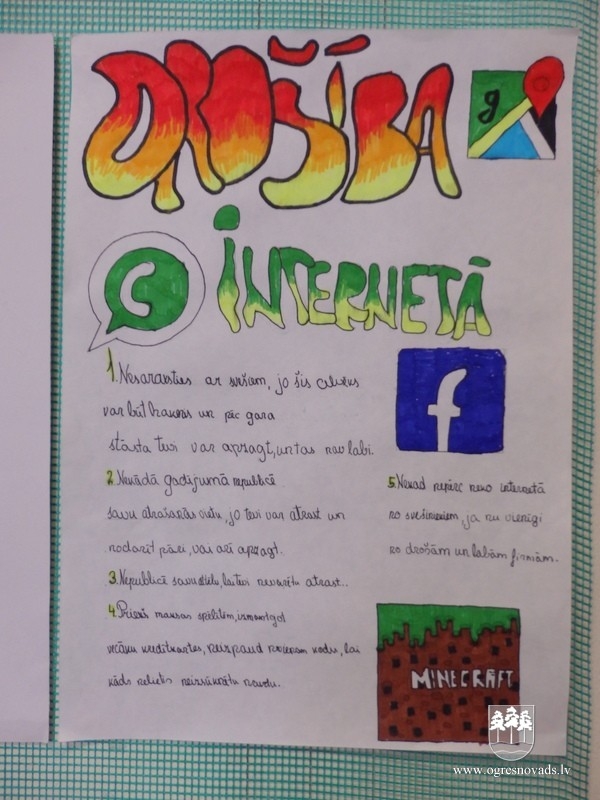 DROŠĪBA
g
INTERNETĀ
1. Nesaraksties ar svešam, jo šis cilvēks
var būt un pēc gara
stāsta tevi var apzagt, un tas nav labi.
2. Nekādā gadījumā nepublicē
savu atrašanās vietu, jo tevi var atrast un
nodarīt pāri, vai arī apzagt.
3. Nepublicē savu, lai tevi nevarētu atrast..
4. maksas spēlītēm, izmantojot
vecāku kredītkartes, neizpaud nevienam kodu, lai
kāds neizsūknētu naudu.
f
5. Nekad nepērc neko internetā
no svešiniekiem, ja nu vienīgi
no drošām un labām firmām.
MINECRAFT
www.ogresnovads.lv